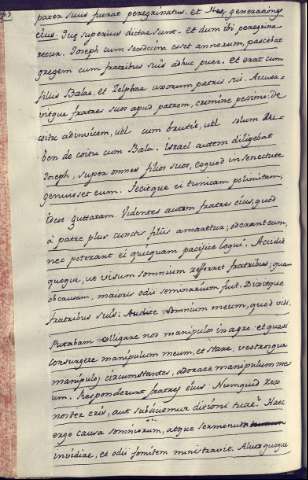 pater suus fuerat peregrinatus. et Hae, generationes
eius. Quę superius dictae sunt. et dum ibi peregrina
retur. Ioseph cum sexdecim esset annorum, pascebat
gregem cum fratribus suis adhuc puer. et erat cum
filijs Balae, et Zelphae uxorum patris sui. Accusa
vitque fratres suos apud patrem, crimine pessimo, de
coitu ad invicem, vel cum brutis, vel solum Ru-
ben de coitu cum Bala. Israel autem diligebat
Ioseph, super omnes filios suos, eo quod in senectute
genuisset eum. Fecitque ei tunicam polimitam,
Videntes autem fratres eius, quod
à patre plus cunctis filijs amaretur, oderant eum,
nec poterant ei quicquam pacifice loqui. Accidit
quoque, ut visum somnium referret fratribus, quae
ob causam, maioris odij seminarium fuit. Dixitque
fratribus suis. Audite somnium meum, quod vidi.
Putabam colligare nos manipulos in agro et quasi
consurgere manipulum meum, et stare, vestrosque
manipulos circumstantes, adorare manipulum me
um. Responderunt fratres eius. Numquid Rex
noster eris, aut subiiciemur ditioni tuae? Haec
ergo causa somniorum, atque sermonum
invidiae, et odij fomitem ministravit. Aliud quoque